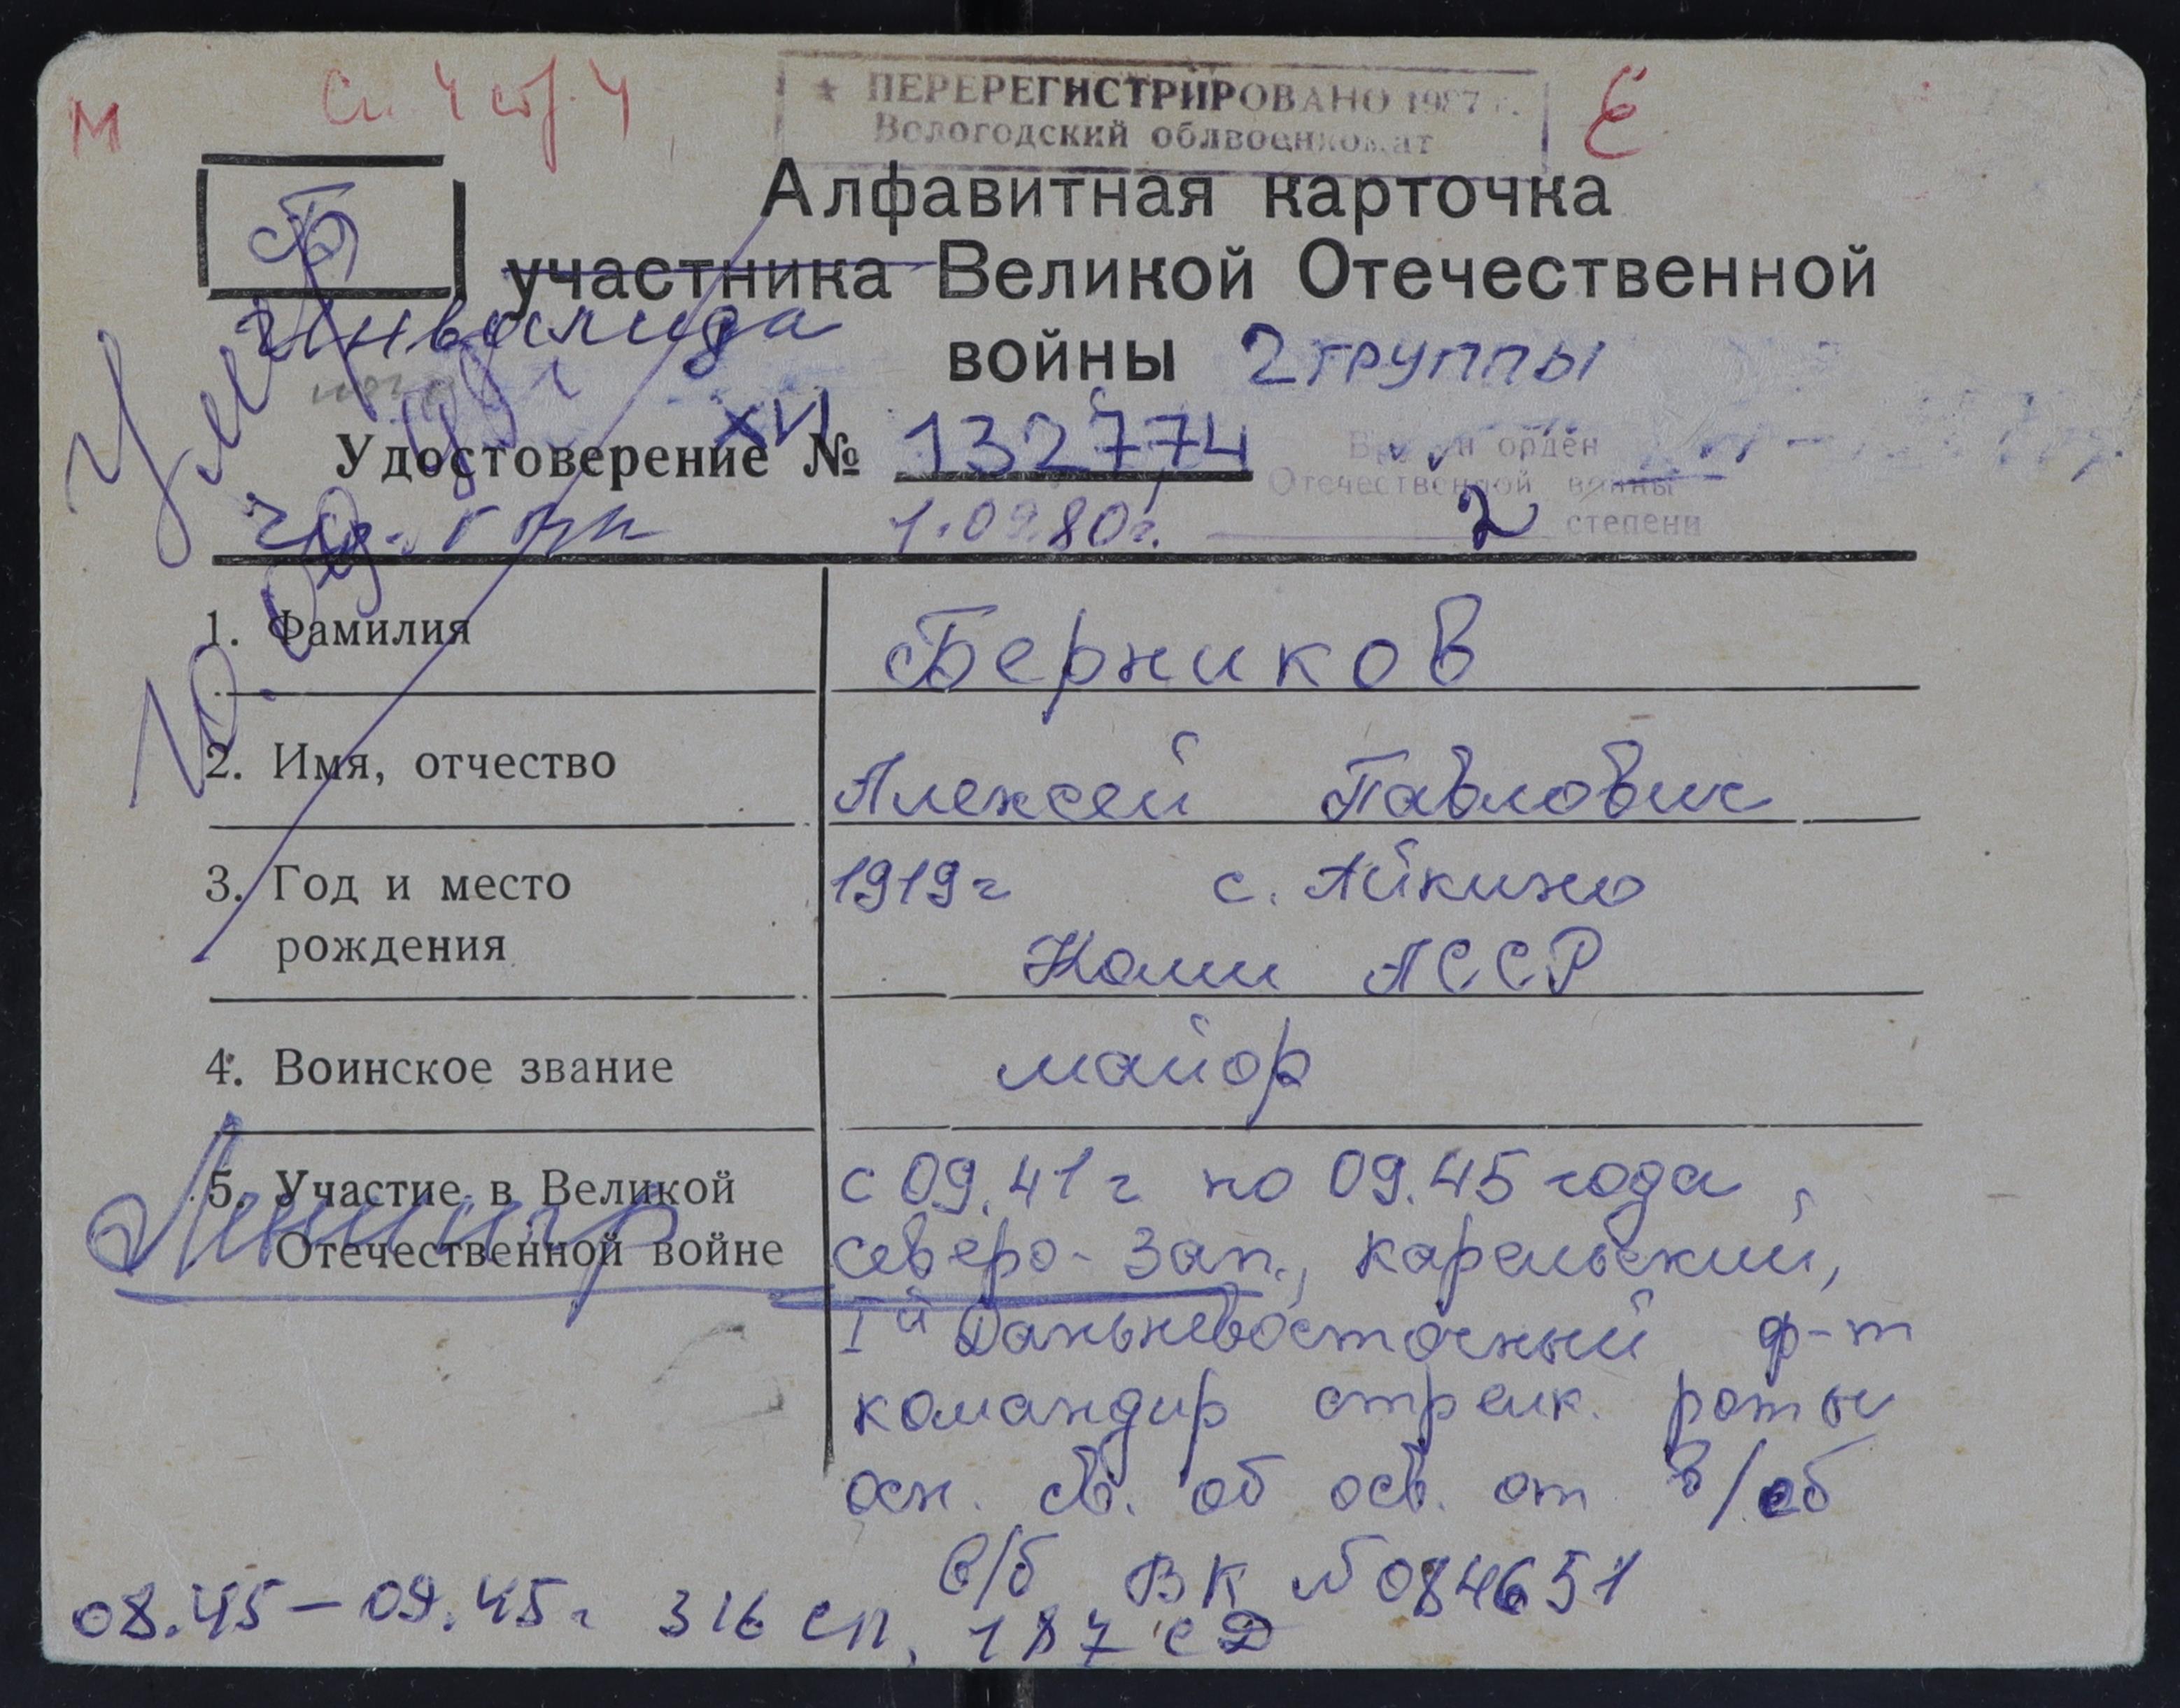 М
★ ПЕРЕРЕГИСТРИРОВАНО 1987 г.
Вологодский облвоенкомат
Б
Алфавитная карточка
участника Великой Отечественной
Инвалида
войны 2 группы
Удостоверение XVI № 132774
1.09.80г.
орден
Отечественной войны
2 степени
1. Фамилия
Берников
2. Имя, отчество
Алексей Павлович
3. Год и место
рождения
1919г с. Айкино
Коми АССР
4. Воинское звание
майор
5. Участие в Великой
Отечественной войне
с 09.41г по 09.45 года,
северо-Зап., карельский,
Iй Дальневосточный ф-т
командир стрелк. роты
осн. св. об осв. от в/об
в/б ВК №084651
08.45–09.45г 316 сп, 187 сД